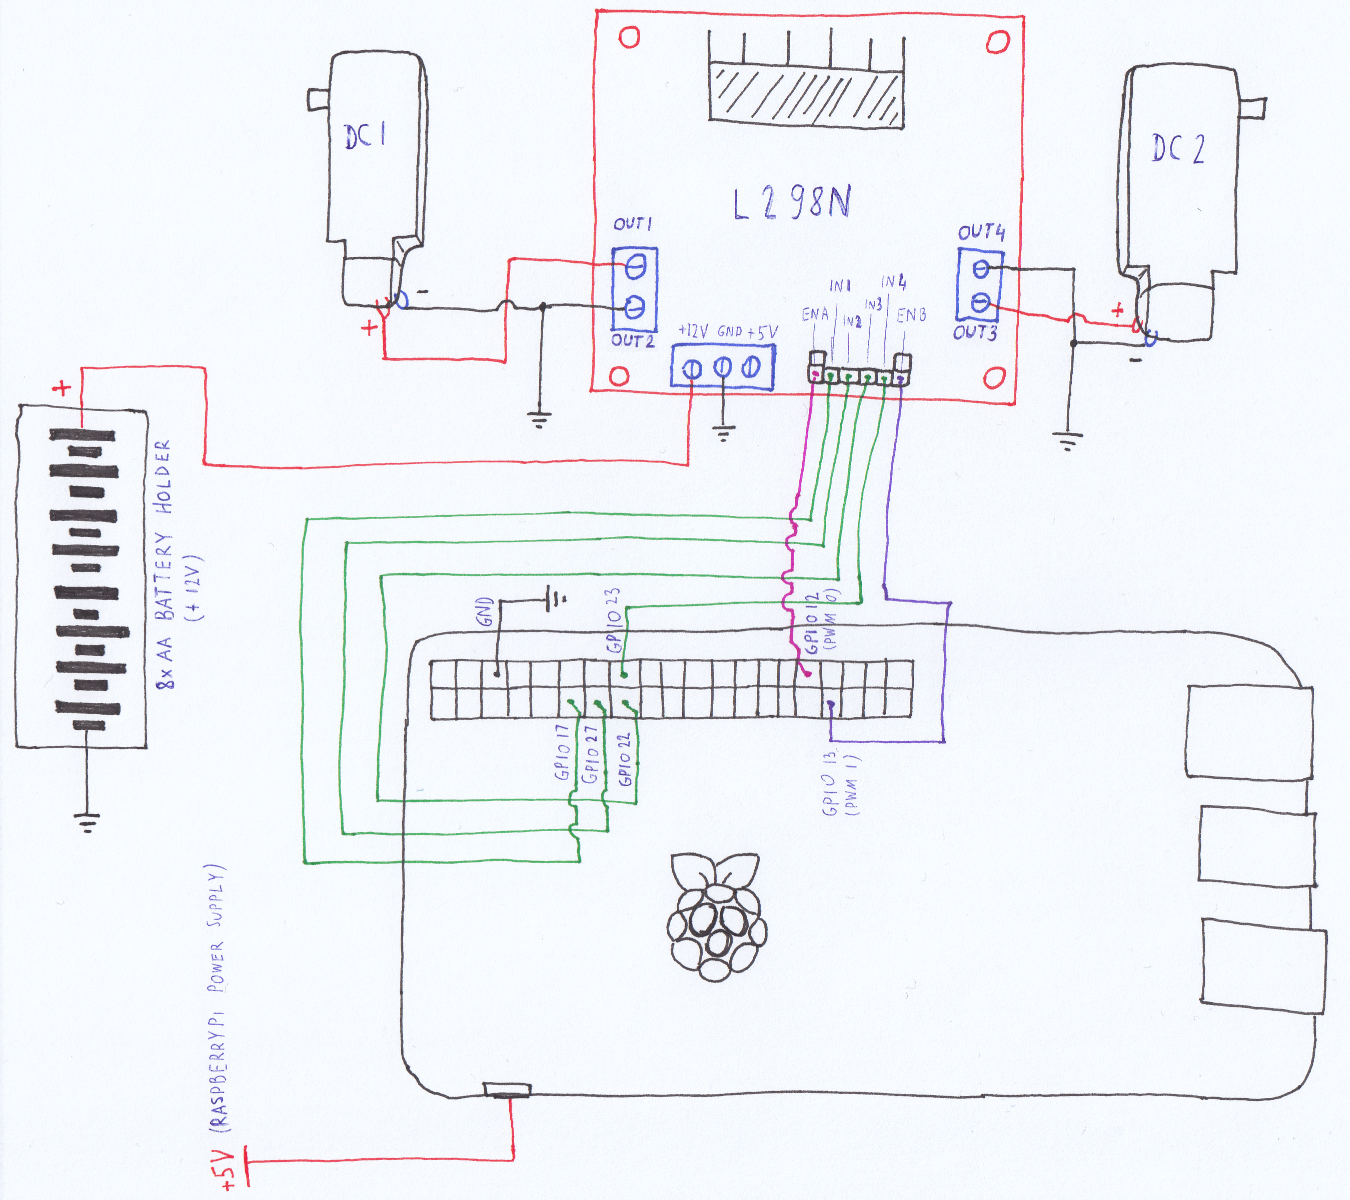 DC1
L298N
DC2
OUT1
OUT2
OUT4
OUT3
-
+
+
-
+12V GND +5V
ENA
IN1
IN2
IN3
IN4
ENB
+
8xAA BATTERY HOLDER
(+12V)
GND
GPIO 23
GPIO 12
(PWM 0)
GPIO 17
GPIO 27
GPIO 22
GPIO 13
(PWM 1)
+5V (RASPBERRYPI POWER SUPPLY)